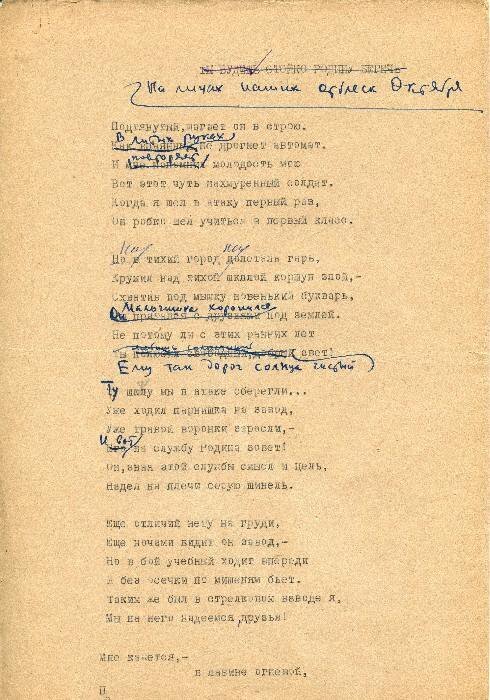 ТЫ БУДЕШЬ СТОЙКО РОДИНУ БЕРЕЧЬ
На лицах наших отблеск Октября
Подтянутый, шагает он в строю.
В литых руках
Как не дрогнет автомат.
повторяет
И мне молодость мою
Вот этот чуть нахмуренный солдат.
Когда я шел в атаку первый раз,
Он робко шел учиться в первый класс.
На
Но в тихий город долетала гарь,
Кружил над тихой школой коршун злой,-
Схватив под мышку новенький букварь,
Мальчишка хоронился
Он с друзьями под землей.
Не потому ли с этих ранних лет
свет!
Ему так дорог солнца чистый
Ту школу мы в атаке сберегли...
Уже ходил парнишка на завод,
Уже травой воронки заросли,-
И вот
на службу Родина зовет!
Он, зная этой службы смысл и цель,
Надел на плечи серую шинель.
Еще отличий нету на груди,
Еще ночами видит он завод,-
Но в бой учебный ходит впереди
И без осечки по мишеням бьет.
Таким же был в стрелковом взводе я,
Мы на него надеемся, друзья!
Мне кажется,-
в лавине огневой,